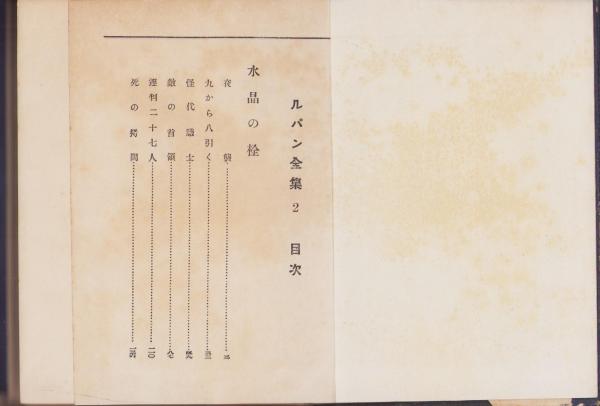 ルパン全集 2 目次
水晶の栓
夜襲
九から八引く
怪代議士
敵の首領
連判二十七人 二〇
死の拷問